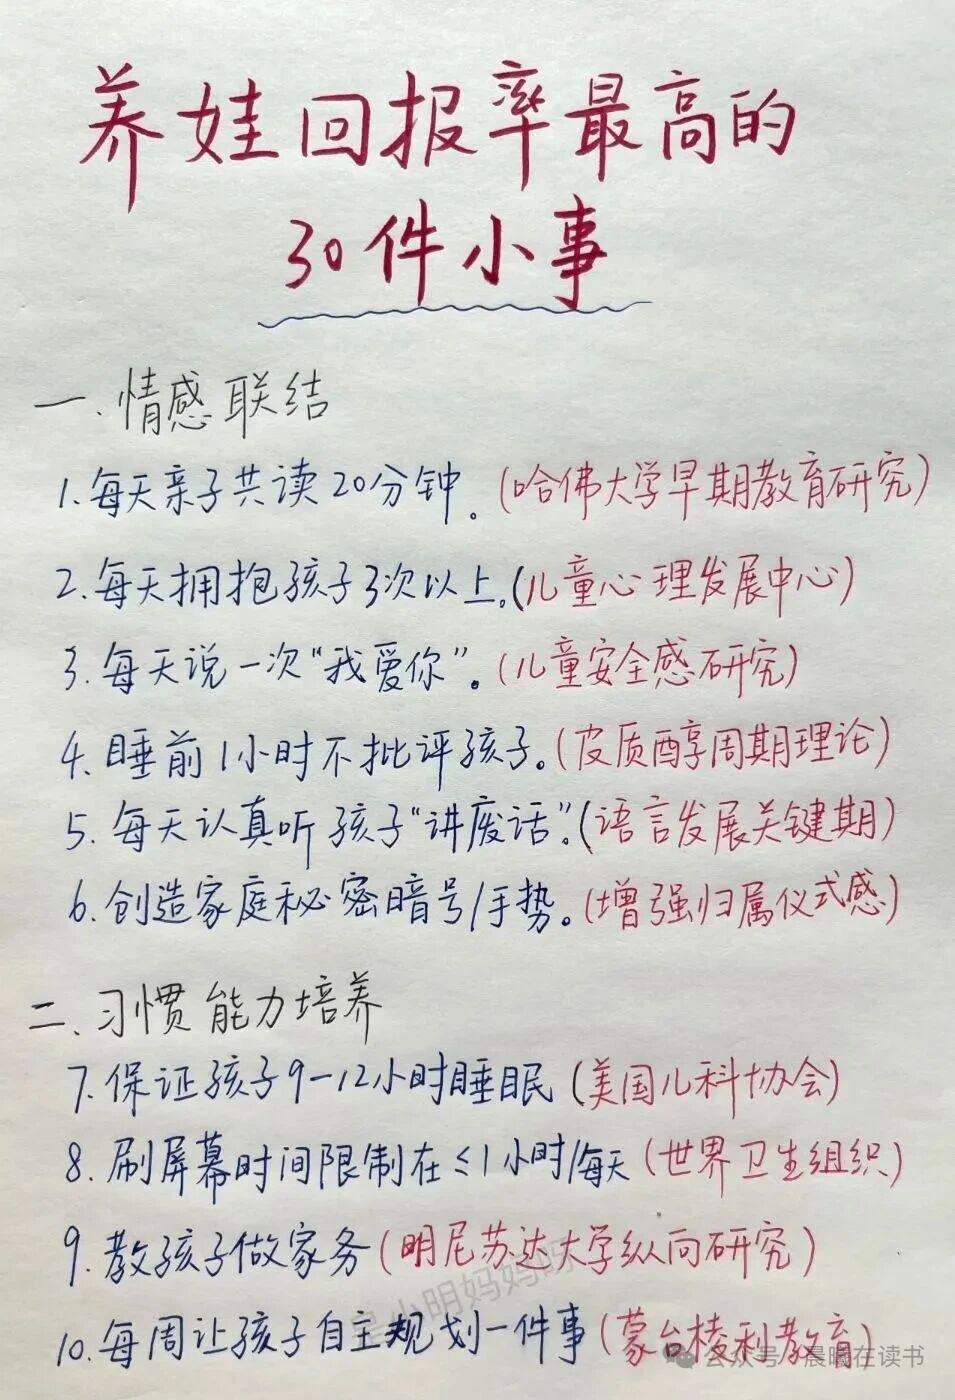 养娃回报率最高的
30件小事
一、情感联结
1.每天亲子共读20分钟。(哈佛大学早期教育研究)
2.每天拥抱孩子3次以上。(儿童心理发展中心)
3.每天说一次“我爱你”。(儿童安全感研究)
4.睡前1小时不批评孩子。(皮质醇周期理论)
5.每天认真听孩子“讲废话”。(语言发展关键期)
6.创造家庭秘密暗号/手势。(增强归属仪式感)
二、习惯能力培养
7.保证孩子9-12小时睡眠(美国儿科协会)
8.刷屏幕时间限制在≤1小时/每天(世界卫生组织)
9.教孩子做家务(明尼苏达大学纵向研究)
10.每周让孩子自主规划一件事(蒙台梭利教育)
是小明妈妈呀
公众号·晨曦在读书